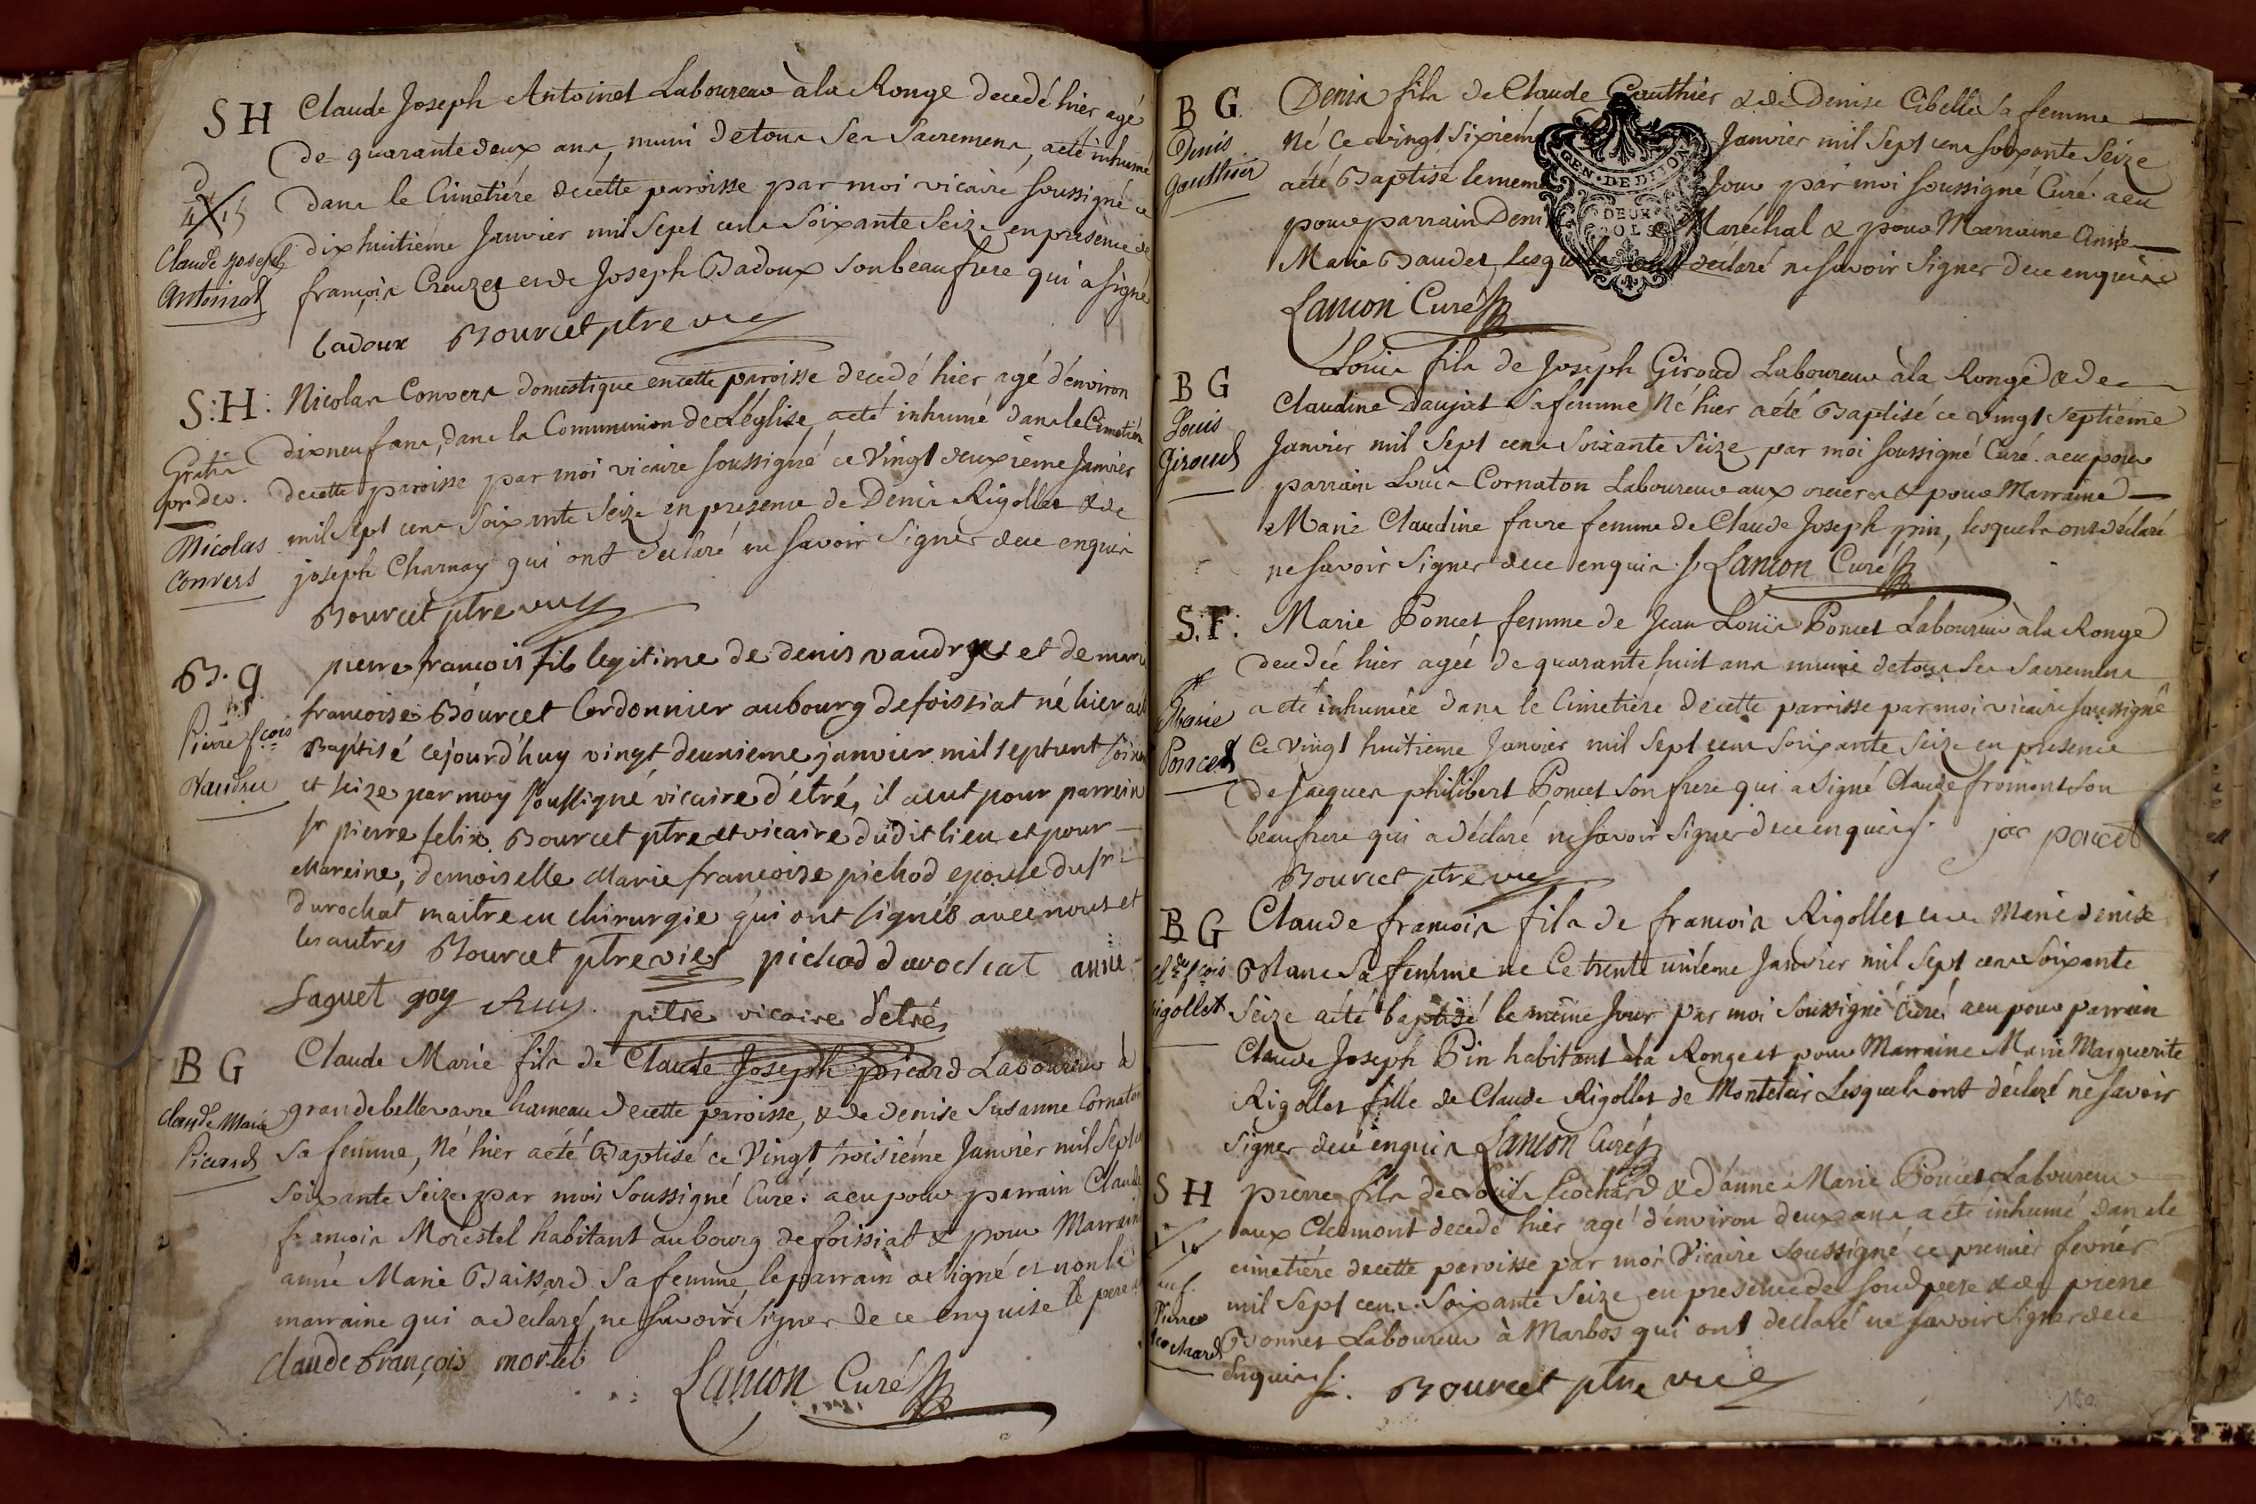 S H
D
Claude Joseph
Antoinet
Claude Joseph Antoinet Laboureur à la Ronge decedé hier agé
de quarante deux ans, muni de tous ses Sacremens, a eté inhumé
dans le Cimetiére de cette paroisse par moi vicaire soussigné ce
dix huitiéme Janvier mil Sept cens Soixante Seize en presence de
françois Creuzet et de Joseph Badoux son beaufrere qui a signé
badoux Bourcet ptre vic
S: H:
Gratis
pr deo.
Nicolas
Convers
Nicolas Convers domestique en cette paroisse decedé hier agé d'environ
dixneuf ans, dans la Communion de L'église, a eté inhumé dans le Cimetiére
de cette paroisse par moi vicaire soussigné ce vingt deuxiéme Janvier
mil Sept cens Soixante Seize en presence de Denis Rigollet & de
joseph Charnay qui ont declaré ne savoir Signer de ce enquis
Bourcet ptre vic
B. g
Pierre fcois
Vaudru
pierre françois fils legitime de denis vaudrus et de marie
francoise Bourcet Cordonnier au bourg de foissiat né hier a eté
Baptisé cejourd'huy vingt deunieme janvier mil septcent soixante
et seize par moy soussigné vicaire d'étré, il a eut pour parrein
sr pierre felix Bourcet ptre et vicaire dudit lieu et pour
Mareine, demoiselle Marie francoise pichod epouse du sr
durochat maitre en chirurgie qui ont signés avec nous et
les autres Bourcet ptre vic pichod durochat anne
Saguet goy Ruy. pitre vicaire d'étrés
B G
Claude Marie
Picard
Claude Marie fils de Claude Joseph picard Laboureur à
grande bellevavre hameau de cette paroisse, & de denise Susanne Cornaton
Sa femme, Né hier a été Baptisé ce Vingt troisiéme Janvier mil Sept cens
Soixante Seize par moi Soussigné Curé: a eu pour parrain Claude
françois Morestel habitant au bourg de foissiat & pour Marraine
anne Marie Baissard Sa femme, le parrain a signé et non la
marraine qui a declaré ne Savoir Signer de ce enquise le pere
Claude françois mortel
Lancon Curé
B G
Denis
Gauthier
Denis fils de Claude Gauthier & de Denise Cibelle Sa femme
Né Ce vingt Sixiéme Janvier mil Sept cens soixante Seize
a été Baptisé le meme Jour par moi soussigné Curé. a eu
pour parrain Denis Maréchal & pour Marraine Anne
Marie Baudet, lesquels ont declaré ne savoir Signer de ce enquis
GEN. DE DIJON
DEUX
SOLS
Lancon Curé
B G
Louis
Giroud
Louis fils de Joseph Giroud Laboureur à la Ronge & de
Claudine Daujat Sa femme Né hier a été Baptisé ce vingt Septiéme
Janvier mil Sept cens Soixante Seize par moi soussigné Curé. a eu pour
parrain Louis Cornaton Laboureur aux & pour Marraine
Marie Claudine favre femme de Claude Joseph pin, lesquels ont déclaré
ne savoir Signer de ce enquis. Lancon Curé
S: F:
Marie
Poncet
Marie Poncet femme de Jean Louis Poncet Laboureur à la Ronge
decedée hier agée de quarante huit ans munie de tous Ses Sacremens
a eté inhumée dans le Cimetiere de cette parroisse par moi vicaire soussigné
Ce Vingt huitieme Janvier mil Sept cens Soixante Seize en presence
de Jacques philibert Poncet Son frere qui a Signé Claude fromont Son
beaufrere qui a déclaré ne savoir Signer de ce enquis. jac poncet
Bourcet ptre vic
B G
Cde fcois
Rigollet
Claude françois fils de françois Rigollet et de Marie denise
Blanc Sa femme ne Ce trente uniéme Janvier mil Sept cens Soixante
Seize a été baptisé le même Jour par moi Soussigné Curé a eu pour parrain
Claude Joseph Pin habitant à la Ronge et pour Marraine Marie Marguerite
Rigollet fille de Claude Rigollet de Monteleir Lesquels ont déclaré ne savoir
Signer de ce enquis Lancon Curé
S H
enf.
Pierre
Cochard
pierre fils de Louis Cochard & d'anne Marie Poncet Laboureur
aux Clermont decedé hier agé d'environ deux ans a été inhumé dans le
cimetiére de cette paroisse par moi Vicaire Soussigné ce premier fevrier
mil Sept cens Soixante Seize en presence de son pere & de pierre
Bonnet Laboureur à Marbos qui ont declaré ne savoir signer de ce
enquis. Bourcet ptre vic